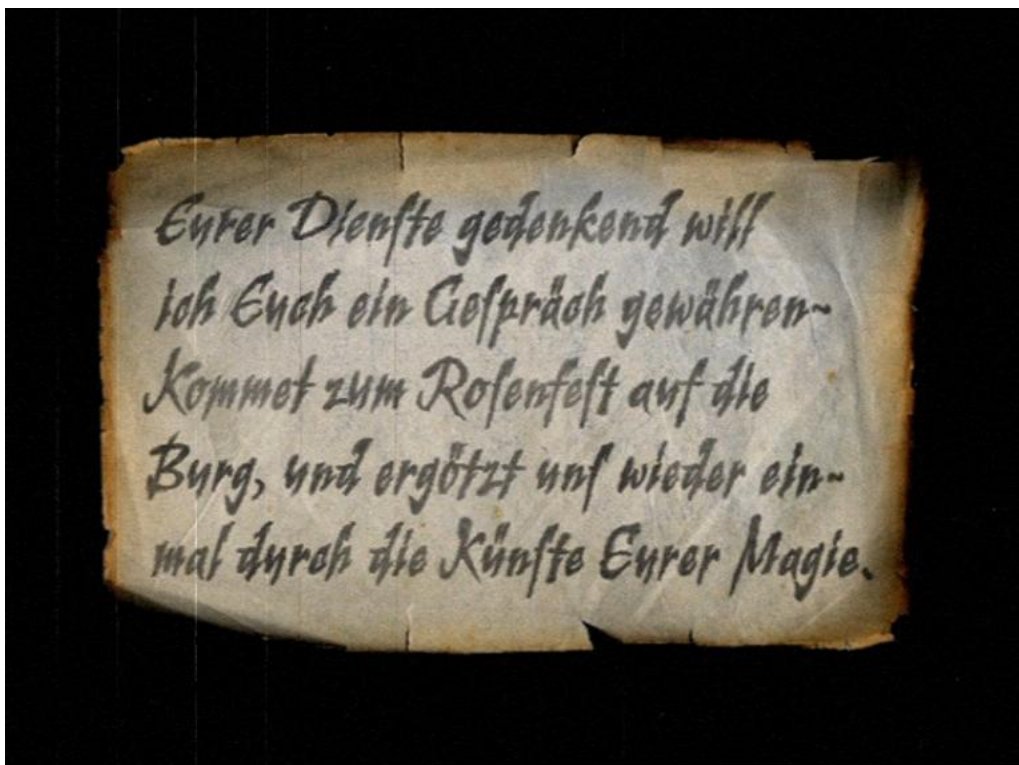 Eurer Dienſte gedenkend will
ich Euch ein Geſpräch gewähren-
Kommet zum Roſenfeſt auf die
Burg, und ergötzt unſ wieder ein-
mal durch die Künſte Eurer Magie.